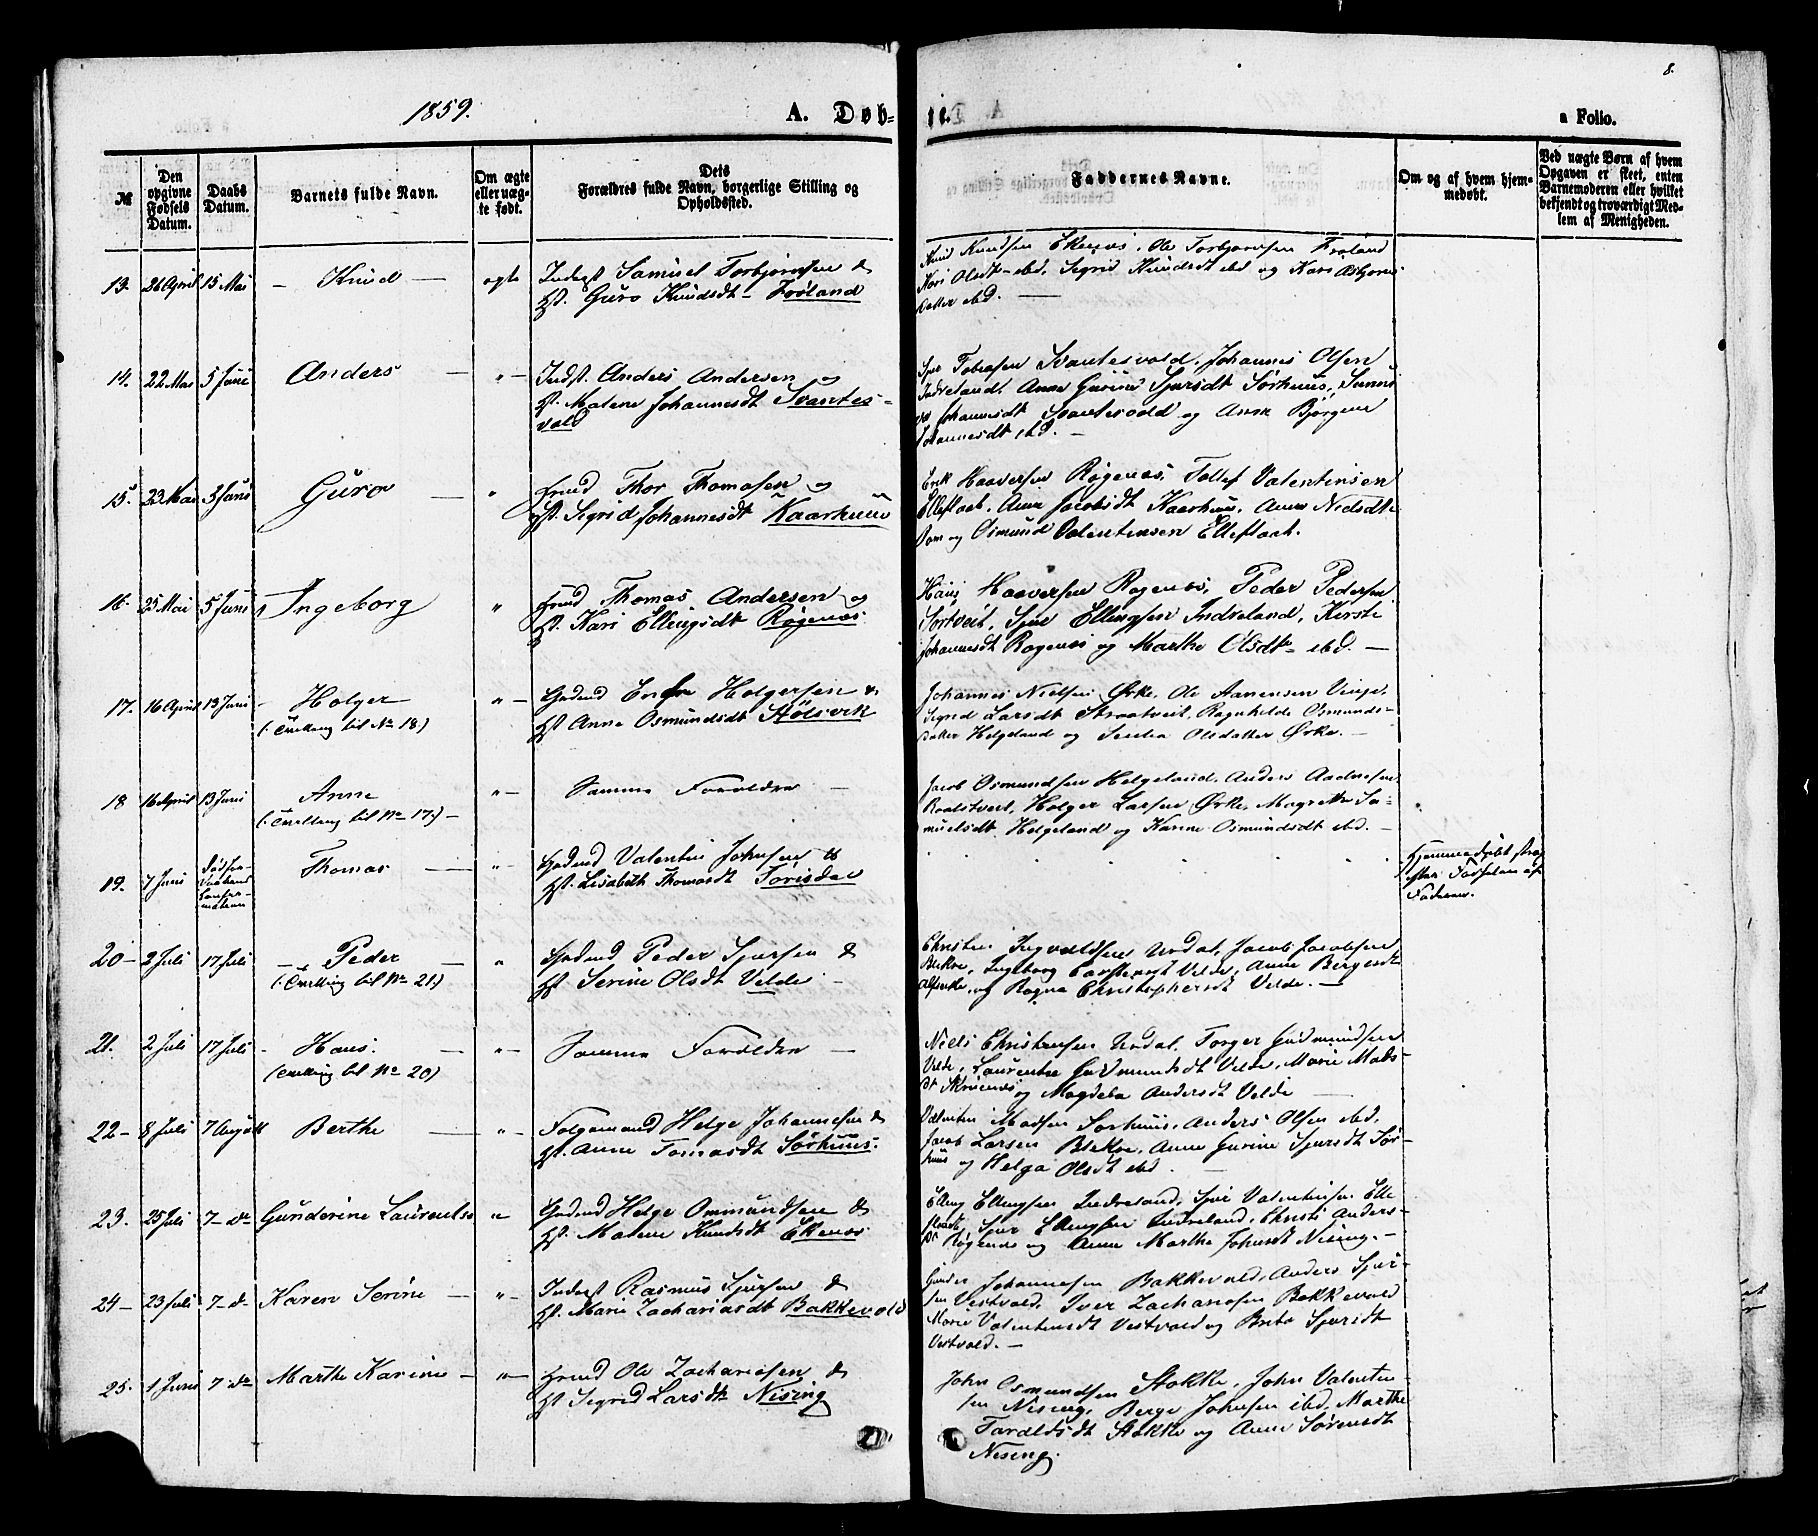 8.
1859.
A. Døb-
te.
a Folio.
№
Den opgivne Fødsels Datum.
Daabs Datum.
Barnets fulde Navn.
Om ægte eller uægte født.
Dets Forældres fulde Navn, borgerlige Stilling og Opholdssted.
Faddernes Navne.
Om og af hvem hjemmedøbt.
Ved uægte Børn af hvem Opgaven er skeet, enten Barnemoderen eller hvilket bekjendt og troværdigt Medlem af Menigheden.
13. 26 April 15 Mai Knud ægte Inderst Samuel Torbjørnsen &
Hst. Guro Knudsdt Frøland
Knud Knudsen Ekenæs, Ole Torbjørnsen Frøland
Kari Olsdt ibd, Sigrid Knudsdt ibd og Kari Asbjørns
datter ibd.
14. 22 Mai 5 Juni Anders " Indst. Anders Andersen og
Hst. Malene Johannesdt Svartes-
vold
Sjur Tobiasen Svartesvold, Johannes Olsen
Indreland, Anne Gurine Sjursdt Sørhuus, Sunni
va Johannesdt Svartesvold og Anne Bjørgine
Johannesdt ibd.
15. 23 Mai 3 Juni Guro " Grmd Thor Thomasen og
Hst. Sigrid Johannesdt Kaarhuus
Erik Haaversen Røgenæs, Tollef Valentinsen
Elleflaat, Anne Jacobsdt Kaarhuus, Anne Nielsdt
Dom og Osmund Valentinsen Elleflaat.
16. 25 Mai 5 Juni Ingeborg " Grmd Thomas Andersen og
Hst. Kari Ellingsdt Røgenæs
Hans Haaversen Røgenæs, Peder Pedersen
Sørtveit, Sjur Ellingsen Indreland, Kirsti
Johannesdt Røgenæs og Marthe Olsdt ibd.
17. 16 April 13 Juni Holger " Gadmd Endre Holgersen &
(: Tvilling til No 18) Hst Anne Osmundsdt Stølsvik
Johannes Nielsen Ørke, Ole Aanensen Vinje,
Sigrid Larsdt Straatveit, Ragnhilde Osmunds-
datter Helgeland og Olsdatter Ørke.
18 16 April 13 Juni Anne " Samme Forældre
(: Tvilling til No 17:)
Jacob Osmundsen Helgeland, Anders Aadnesen
Raaltveit, Holger Larsen Ørke, Magrethe Sa-
muelsdt Helgeland og Karine Osmundsdt ibd.
19. 7 Juni Død før
Daabens
Confir-
mation Thomas " Gadmd Valentin Johnsen &
Hst. Lisabeth Thomasdt Torisdal
Hjemmedøbt strax
efter Fødselen af
Faderen.
20 2 Juli 17 Juli Peder " Gadmd Peder Sjursen &
(: Tvilling til No 21:) Hst Serine Olsdt Velde
Christen Ingvaldsen Urdal, Jacob Jacobsen
Blikre, Ingeborg Carstensdt Velde, Anne Bergesdt
Alfsvike, og Ragna Christophersdt Velde.
21. 2 Juli 17 Juli Hans. " Samme Forældre
(Tvilling til No 20)
Niels Christensen Urdal, Torger Gudmundsen
Velde, Laurentze Gudmundsdt Velde, Marie Mads-
dt Skruenæs og Magdela Andersdt Velde
22 8 Juli 7 August Berthe " Folgemand Helge Johannesen &
Hst. Anne Tomasdt Sørhuus.
Valentin Madsen Sørhuus, Anders Olsen ibd,
Jacob Larsen Blikre, Anne Gurine Sjursdt Sør-
huus og Helga Olsdt ibd.
23. 25 Juli 7 do Gunderine Laurentze " Gadmd Helge Ommundsen &
Hst Malene Knudsdt Ekenæs
Elling Ellingsen Indreland, Sjur Valentinsen Elle
flaate, Sjur Ellingsen Indreland, Christi Anders-
dt Røgenæs og Anne Marthe Johnsdt Nising.
24 23 Juli 7 do Karen Serine " Inderst Rasmus Sjursen &
Hst. Marie Zachariasdt Bakkevold
Gunder Johannesen Bakkevold, Anders Sjur-
sen Vestvold, Iver Zachariasen Bakkevold
Marie Valentinsdt Vestvold og Brita Sjursdt
Vestvold.
25. 1 Juni 7 do Marthe Karine " Grmd Ole Zachariesen &
Hst Sigrid Larsdt Nising
John Osmundsen Stokke, John Valentin-
sen Nising, Berge Johnsen ibd, Marthe
Taraldsdt Stokke og Anne Sørensdt
Nising.